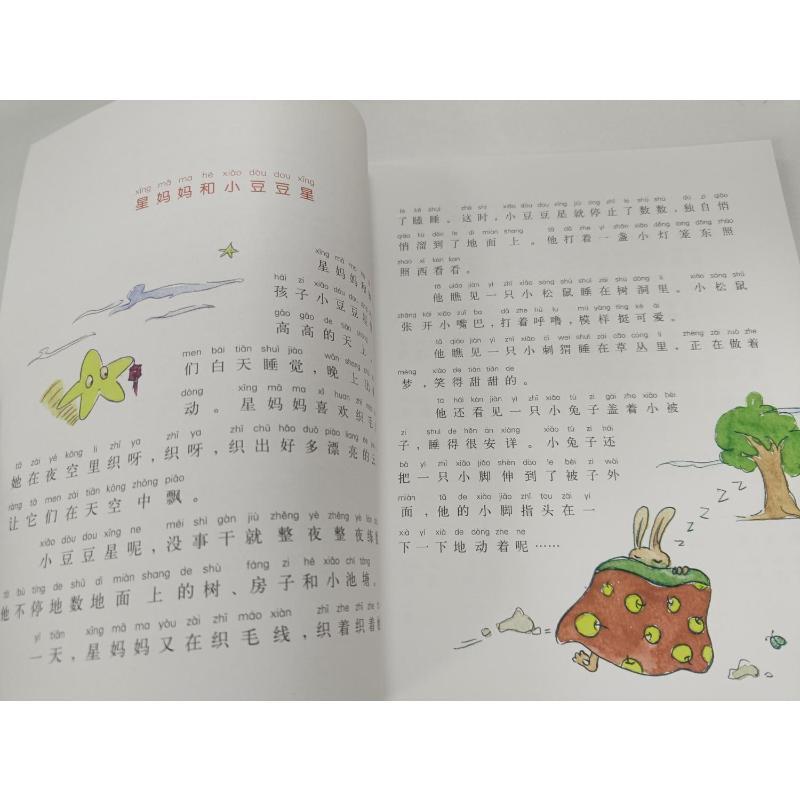 xīng mā ma hé xiǎo dòu dou xīng
星妈妈和小豆豆星
xīng mā ma
星妈妈
hái zi xiǎo dòu dou
孩子小豆豆
gāo gāo de tiān shàng
高高的天上，
men bái tiān shuì jiào wǎn shang
们白天睡觉，晚上
dòng xīng mā ma xǐ huan zhī máo
动。星妈妈喜欢织毛
tā zài yè kōng li zhī ya zhī ya zhī chū hǎo duō piào liang de
她在夜空里织呀，织呀，织出好多漂亮的
ràng tā men zài tiān kōng zhōng piāo
让它们在天空中飘。
xiǎo dòu dou xīng ne méi shì gàn jiù zhěng yè zhěng yè
小豆豆星呢，没事干就整夜整夜
tā bù tíng de shǔ dì miàn shang de shù fáng zi hé xiǎo chí táng
他不停地数地面上的树、房子和小池塘。
yì tiān xīng mā ma yòu zài zhī máo xiàn zhī zhe zhī zhe
一天，星妈妈又在织毛线，织着织着
le kē shuì zhè shí xiǎo dòu dou xīng jiù tíng zhǐ le shǔ shù dú zì qiāo
了瞌睡。这时，小豆豆星就停止了数数，独自悄
qiāo liū dào le dì miàn shang tā dǎ zhe yì zhǎn xiǎo dēng long dōng zhào
悄溜到了地面上。他打着一盏小灯笼东照
zhào xī kàn kan
照西看看。
tā qiáo jiàn yì zhī xiǎo sōng shǔ shuì zài shù dòng li xiǎo sōng shǔ
他瞧见一只小松鼠睡在树洞里。小松鼠
zhāng kāi xiǎo zuǐ ba dǎ zhe hū lu mú yàng tǐng kě ài
张开小嘴巴，打着呼噜，模样挺可爱。
tā qiáo jiàn yì zhī xiǎo cì wei shuì zài cǎo cóng li zhèng zài zuò zhe
他瞧见一只小刺猬睡在草丛里。正在做着
mèng xiào de tián tián de
梦，笑得甜甜的。
tā hái kàn jiàn yì zhī xiǎo tù zi gài zhe xiǎo bèi
他还看见一只小兔子盖着小被
zi shuì de hěn ān xiáng xiǎo tù zi hái
子，睡得很安详。小兔子还
bǎ yì zhī xiǎo jiǎo shēn dào le bèi zi wài
把一只小脚伸到了被子外
miàn tā de xiǎo jiǎo zhǐ tou zài yí
面，他的小脚指头在一
xià yí xià de dòng zhe ne
下一下地动着呢……
Z Z Z Z Z